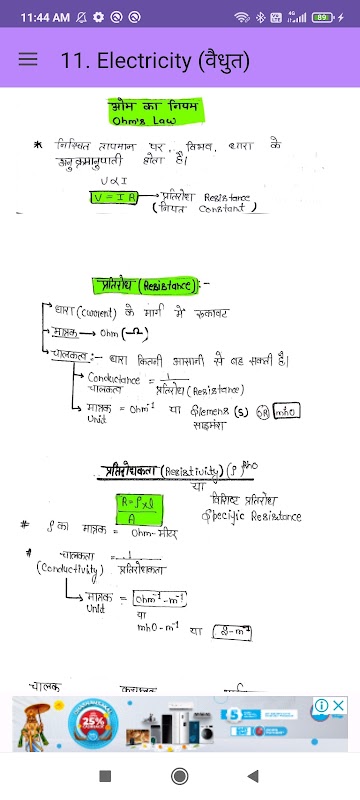 11:44 AM
89
11. Electricity (वैधुत)
ओम का नियम
Ohm's Law
* निश्चित तापमान पर, विभव, धारा के
अनुक्रमानुपाती होता है।
V∝I
V = I R → प्रतिरोध Resistance
(नियत Constant)
प्रतिरोध (Resistance) :-
धारा (Current) के मार्ग में रुकावट
मात्रक → Ohm (Ω)
चालकत्व :- धारा कितनी आसानी से बह सकती है।
Conductance = 1
चालकत्व प्रतिरोध (Resistance)
मात्रक = Ohm⁻¹ या (S) OR mho
Unit साइमंस
प्रतिरोधकता (Resistivity) (ρ) Rho
या
R = ρ×l विशिष्ट प्रतिरोध
A Specific Resistance
# ρ का मात्रक = Ohm-मीटर
* चालकता = 1
(Conductivity) प्रतिरोधकता
मात्रक = Ohm⁻¹-m⁻¹
Unit या
mho-m⁻¹ या S-m⁻¹
चालक
25%